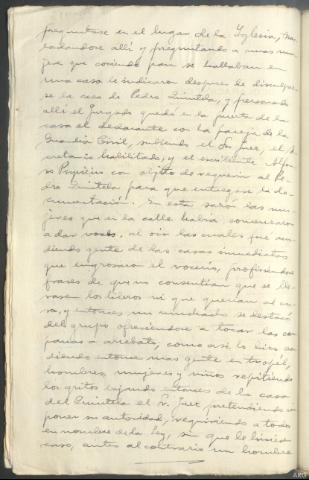 preguntase en el lugar de la Iglesia, tras-
ladandose alli y preguntando a unas mu-
jeres que cociendo pan se hallaban en
una casa le indicaron despues de disculpar-
se la casa de Pedro Quintela, y personado
alli el Juzgado quedó en la puerta de la
casa el declarante con la pareja de la
Guardia Civil, subiendo el Sr Juez, el Se-
cretario habilitado, y el escribiente Alfon-
so con objeto de requerir al Pe-
dro Quintela para que entregase la do-
cumentación. En este las mu-
jeres que en la calle habia comenzaron
a dar voces, al oir las cuales fue acu-
diendo gente de las casas inmediatas
que engrosaron el vocerío, profiriendo
frases de que no consentian que se lle-
vasen los libros ni que querian al cu-
ra, y entonces un muchacho se destacó
del grupo ofreciendose a tocar las cam-
panas a arrebato, como así lo hizo acu-
diendo entonces mas gente en tropel,
hombres, mujeres y niños repitiendo
los gritos bajando entonces de la casa
del Quintela el Sr. Juez pretendiendo im-
poner su autoridad, requiriendo a todos
en nombre de la ley, sin que le hiciesen
caso, antes al contrario un hombre